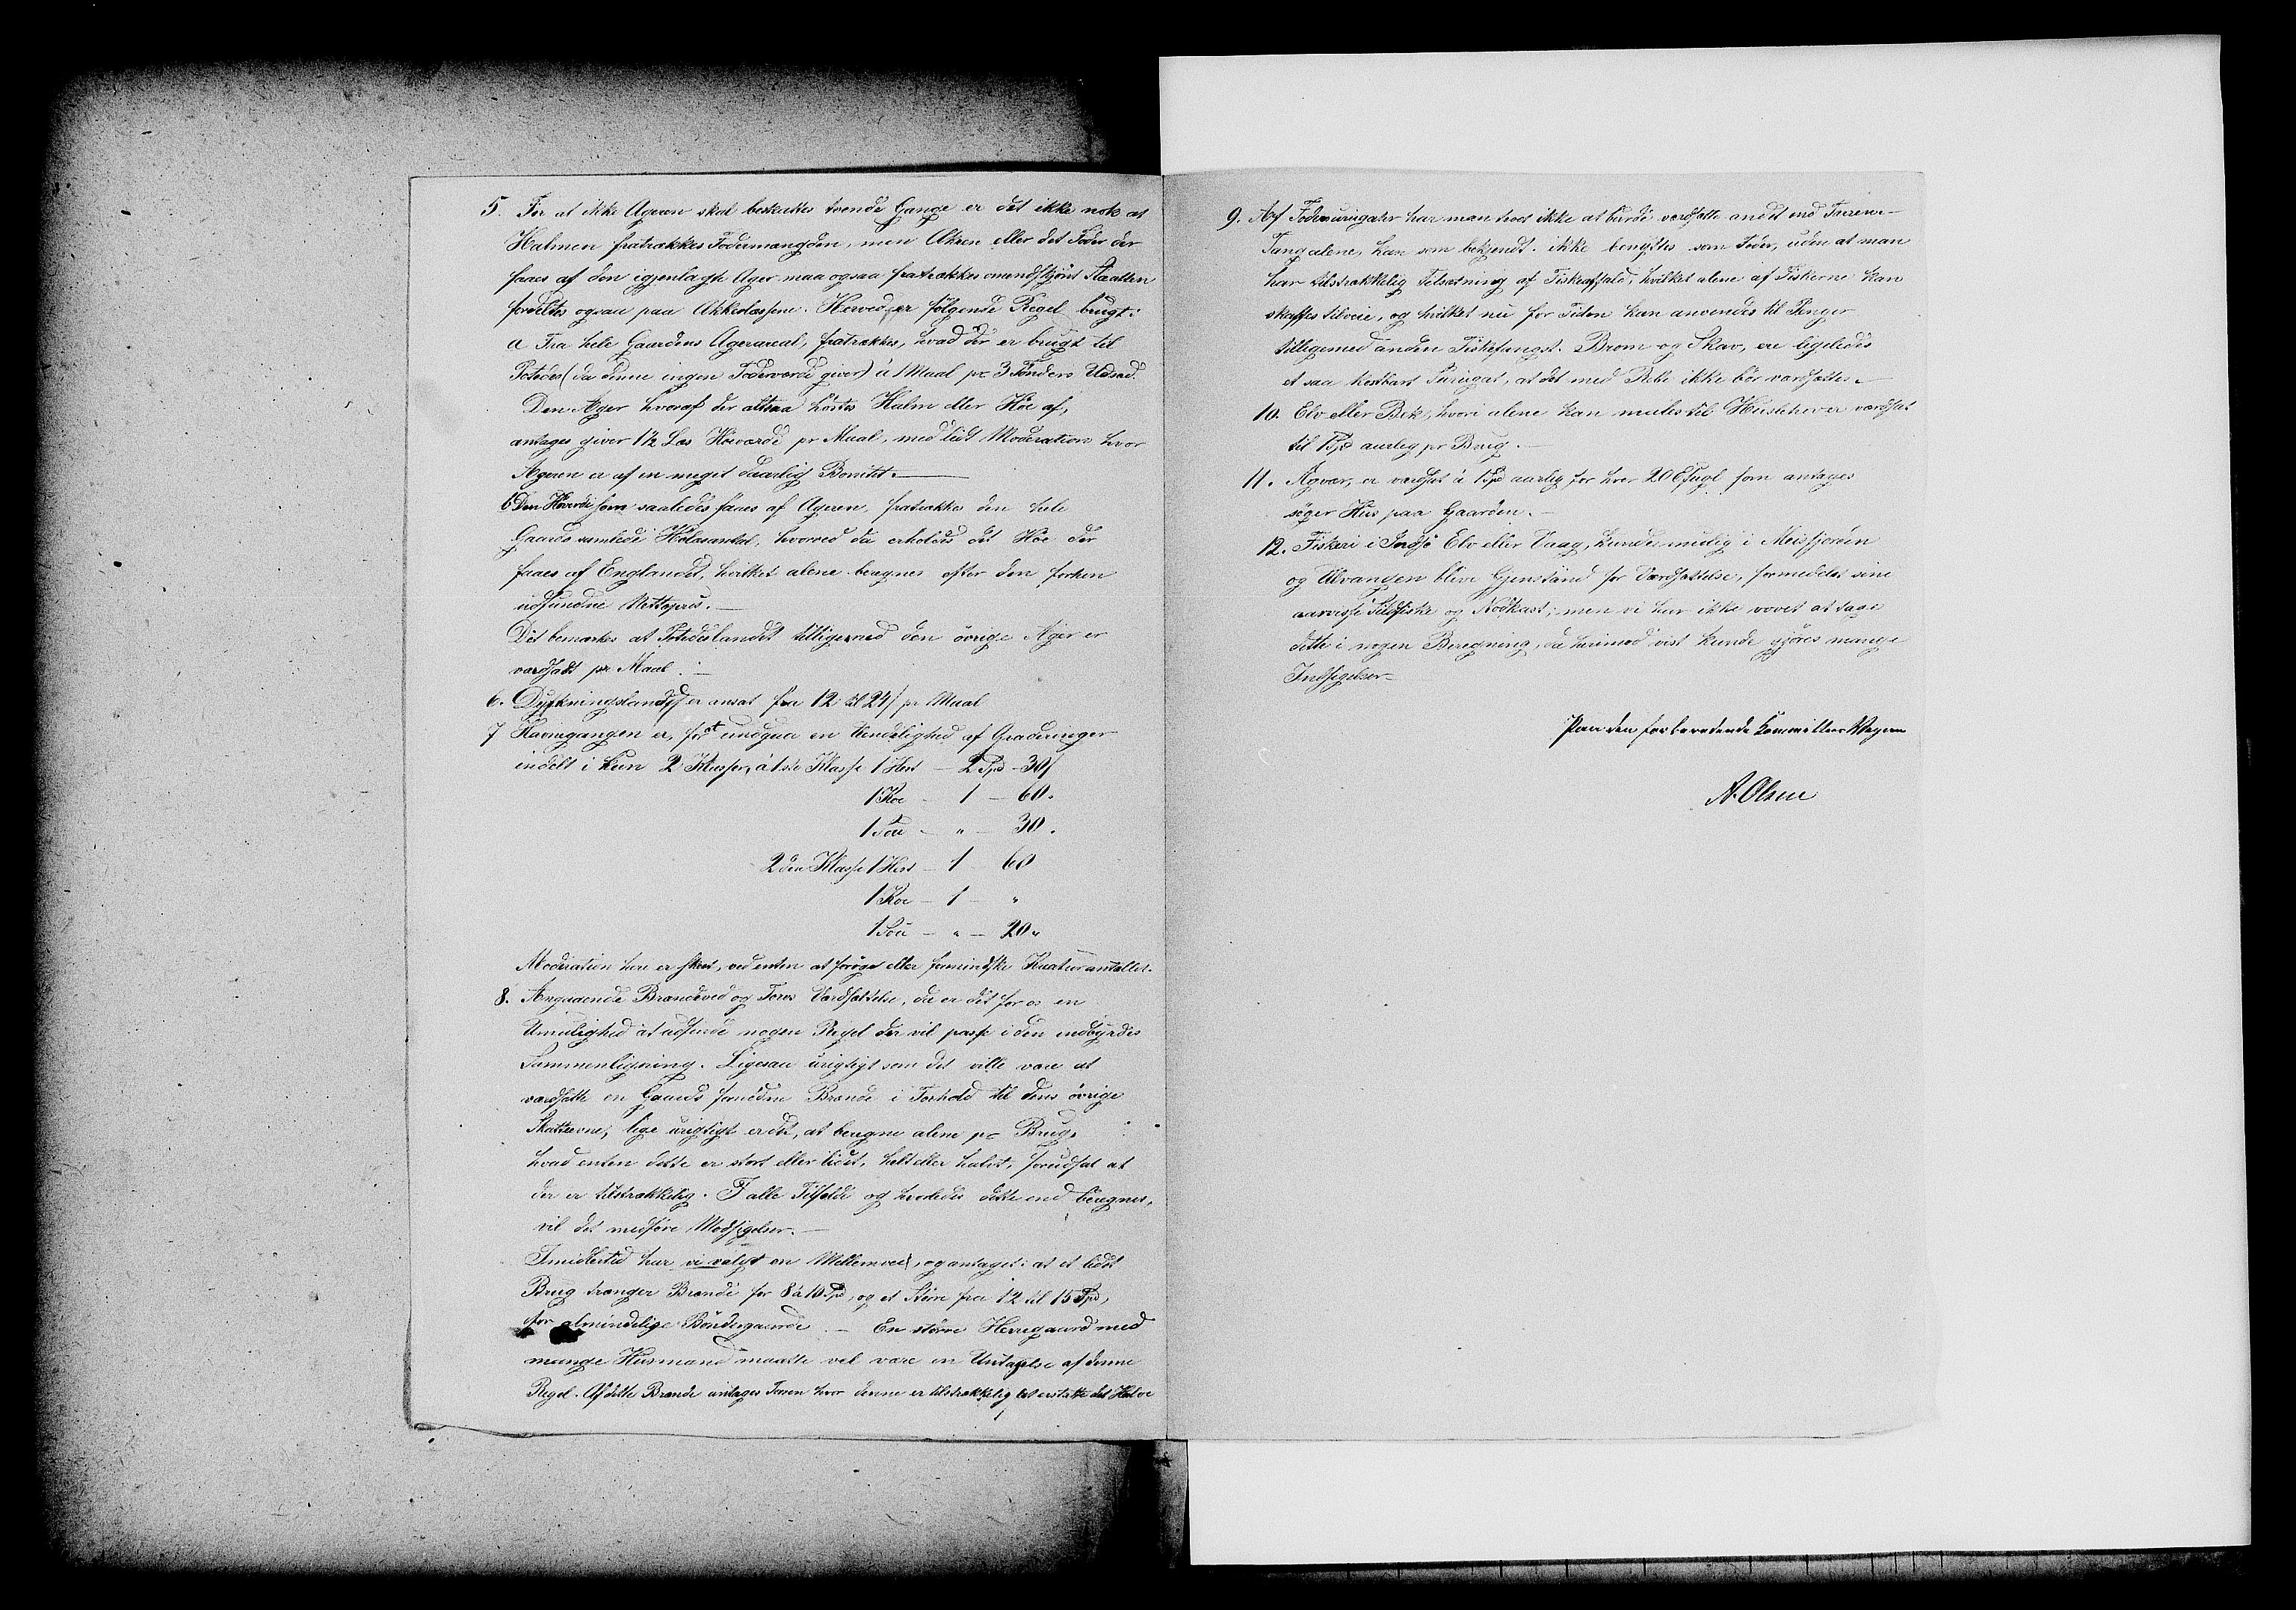 5. For at ikke Ageren skal beskattes tvende Gange er det ikke nok at
Halmen fratrækkes Fodermængden, men Ahren eller det Foder der
faaes af den igjenlagte Ager maa ogsaa fratrækkes omendskjønt Skatten
fordeltes ogsaa paa Akkerlæssene. Herved er følgende Regel brugt:
a Fra hele Gaardens Agerareal, fratrækkes, hvad der er brugt til
Potetes (da denne ingen Foderværdi giver) à 1 Maal pr 3 Tønders Udsæd.
Den Ager hvoraf der altsaa høstes Halm eller Høe af,
antages giver 1½ Læs Høeværdi pr Maal, med lidt Moderation hvor
Ageren er af en meget daarlig Bonitet.
b Den Høeværdi som saaledes faaes af Ageren, fratrækkes den hele
Gaards samlede Hølæsantal, hvorved da erholdes det Høe der
faaes af Englandet, hvilket alene beregnes efter den forhen
udfundne Nettopris.
Det bemærkes at Potedeslandet tilligemed den øvrige Ager er
værdsadt pr Maal.
6. Dyrkningslandet er ansat fra 12 til 24 ſ pr Maal
7 Havnegangen er, for at undgaa en Uendelighed af Graderinger
indelt i kun 2 Klasser, à 1ste Klasse 1 Hest – 2 Spd – 30 ſ
1 Koe – 1 – 60 „
1 Sou – „ – 30 „
2den Klasse 1 Hest – 1 60
1 Koe – 1 – „
1 Sou – „ – 20 „
Moderation her er skeet, ved enten at forøge eller formindske Kreaturantallet.
8. Angaaende Brændeved og Torvs Værdsættelse, da er det for os en
Umulighed at udfinde nogen Regel der vil passe i den indbyrdes
Sammenligning. Ligesaa urigtigt som det ville være at
værdsætte en Gaards fornødne Brænde i Forhold til dens øvrige
Skatteevne, lige urigtigt er det, at beregne alene pr Brug,
hvad enten dette er stort eller lidet, helt eller halvt, forudsat at
der er tilstrækkelig. I alle Tilfælde og hvorledes dette end beregnes,
vil det medføre Modsigelser.
Imidlertid har vi valgt en Mellemvei, og antaget: at et lidet
Brug trænger Brænde for 8 à 10 Spd, og et Større fra 12 til 15 Spd,
for almindelige Bøndergaarde. – En større Herregaard med
mange Husmænd maatte vel være en Undtagelse af denne
Regel. Af dette Brænde antages Torven hvor denne er tilstrækkelig at erstatte det Halve
9. Af Foder har man troet ikke at burde værdsætte andet end
Tang alene, kan som bekjendt ikke benyttes som Foder, uden at man
har tilstrækkelig Tilsætning af Fiskeaffald, hvilket alene af Fiskerne kan
skaffes tilveie, og hvilket nu for Tiden kan anvendes til Penger
tilligemed anden Fiskefangst. Brom og Skav, ere ligeledes
et saa kostbart Surrugat, at det med Rette ikke bør værdsættes.
10. Elv eller Bæk, hvori alene kan males til Husbehov er værdsat
til 1 Spd aarlig pr Brug.
11. Ægvær, er værdsat à 1 Spd aarlig for hver 20 Efugl som antages
søger Hus paa Gaarden.
12. Fiskeri i Indsø Elv eller Vaag, kunde muelig i Meisfjorden
og Ulvangen blive Gjenstand for Værdsættelse, formedelst sine
aarvisse Sildfiske og Nodkast; men vi har ikke vovet at tage
dette i nogen Beregning, da herimod vist kunde gjøres mange
Indsigelser
Paa den forberedende Kommitees Vegne
A. Olsen